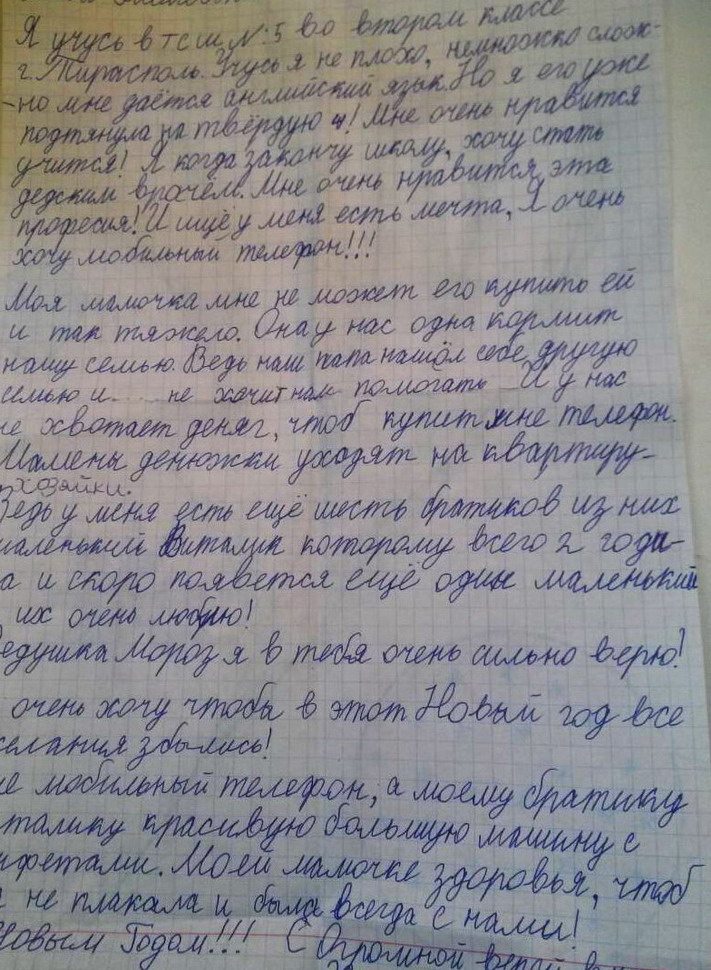 Я учусь в тсш №:5 во втором классе
г. Тирасполь. Учусь я не плохо, немножко слож-
-но мне даётся английский язык. Но я его уже
подтянула на твёрдую 4! Мне очень нравится
учится! Я когда закончу школу, хочу стать
дедским врачём. Мне очень нравится эта
професия! И ищё у меня есть мечта, Я очень
хочу мобильный телефон!!!
Моя мамочка мне не может его купить ей
и так тяжело. Она у нас одна кормит
нашу семью. Ведь наш папа нашол себе другую
семью и.... не хочит нам помогать И у нас
не хвотает деняг, чтоб купит мне телефон.
Мамены денюжки уходят на квартиру-
хозяйки.
Ведь у меня есть ещё шесть братиков из них
маленький Виталик которому всего 2 годи-
а и скоро появется ещё один маленький
их очень люблю!
Дедушка Мороз я в тебя очень сильно верю!
очень хочу чтобы в этот Новый год все
желания збылись!
мобильный телефон, а моему братику
талику красивую большую машину с
нфетами. Моей мамочке здоровья, чтоб
не плакала и была всегда с нами!
Новым Годом!!! С Огромной верой в